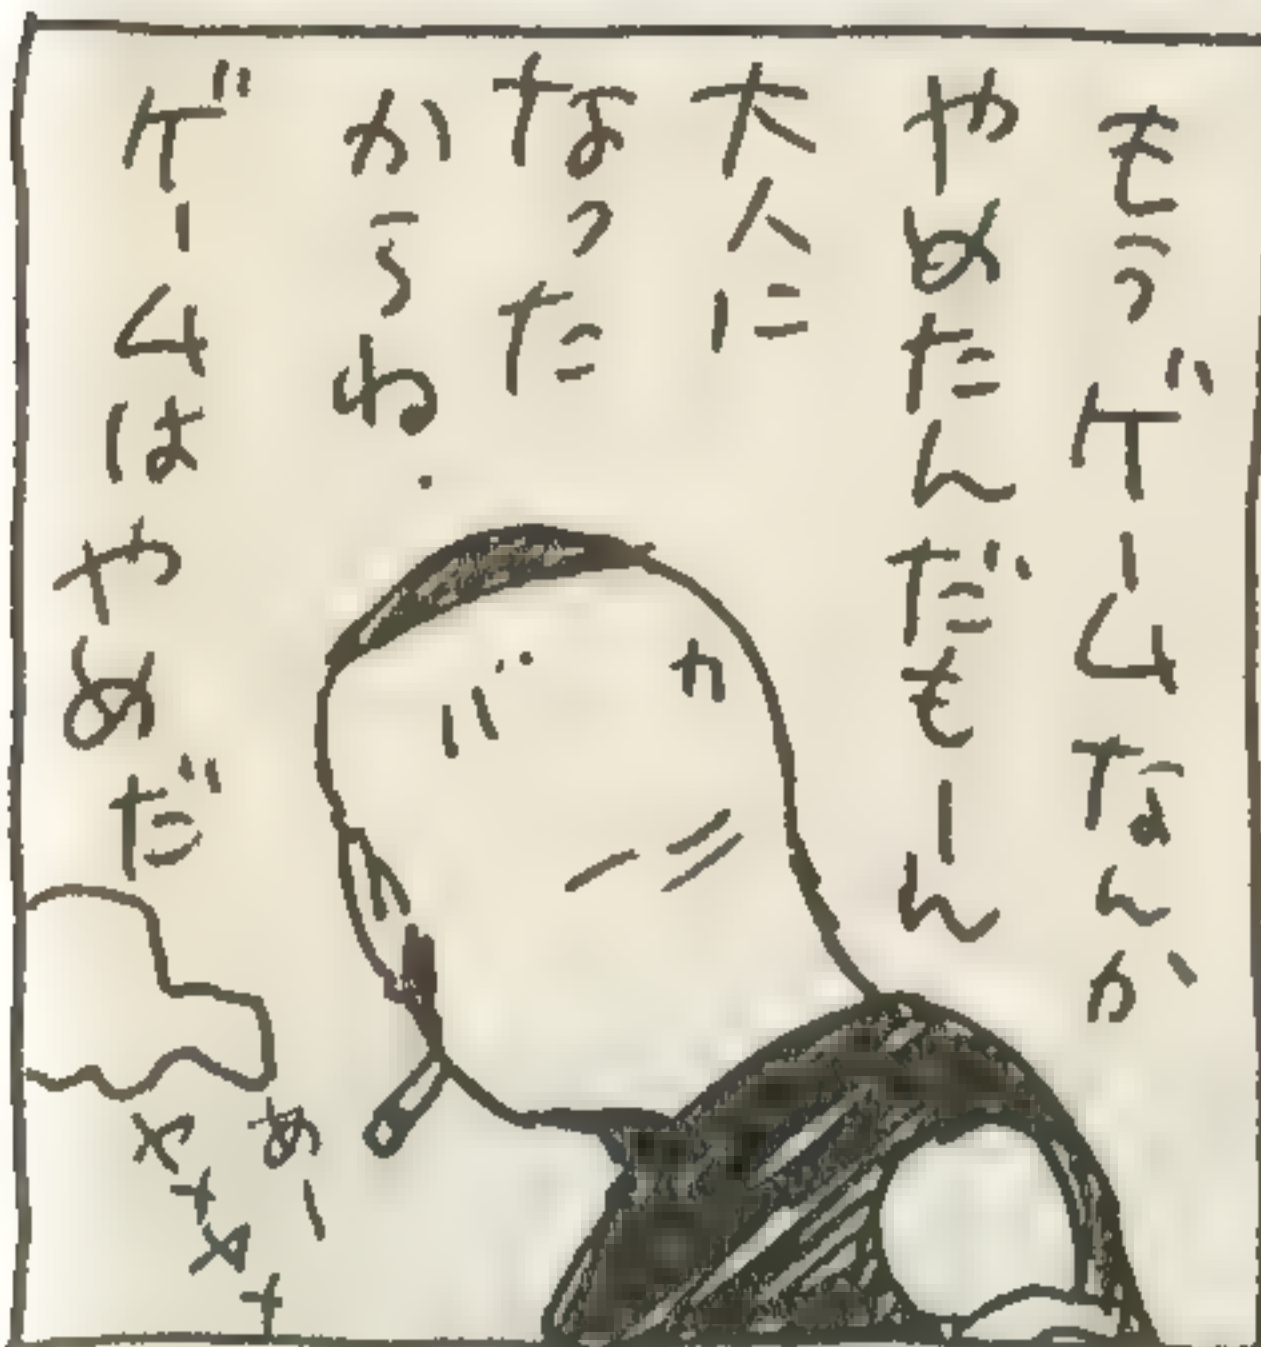 もうゲームなんか
やめたんだもーん
大人に
なった
からね.
ゲームはやめだ
バ
カ
あー